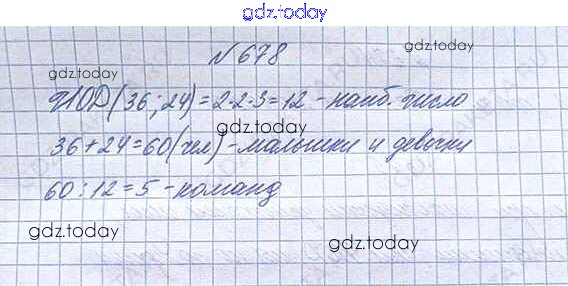 gdz.today
№ 678
gdz.today
gdz.today
НОД(36;24)=2·2·3=12 - наиб. число
gdz.today
36+24=60(чел) - мальчики и девочки
60:12=5 - команд
gdz.today
gdz.today